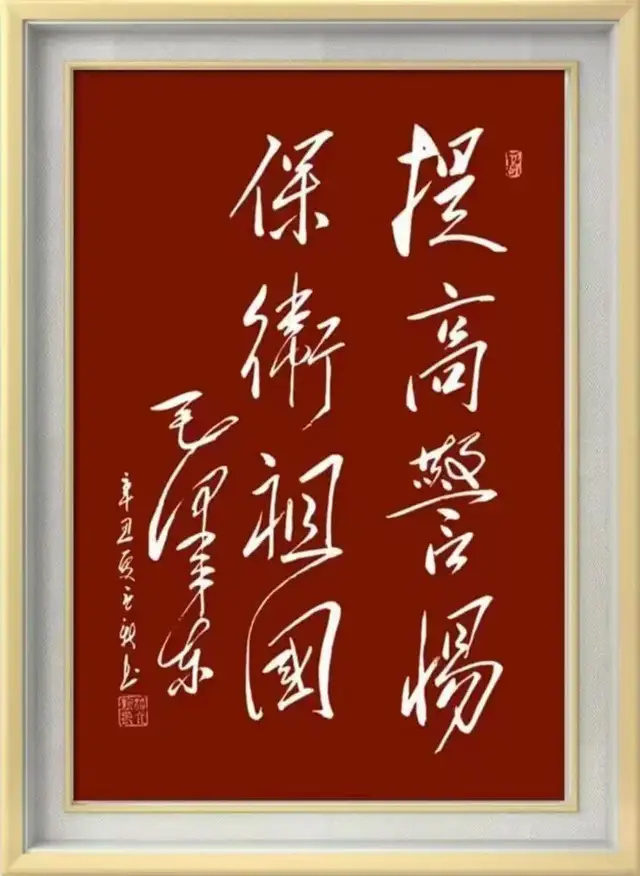 提高警惕
保衛祖國
毛澤東
辛丑夏